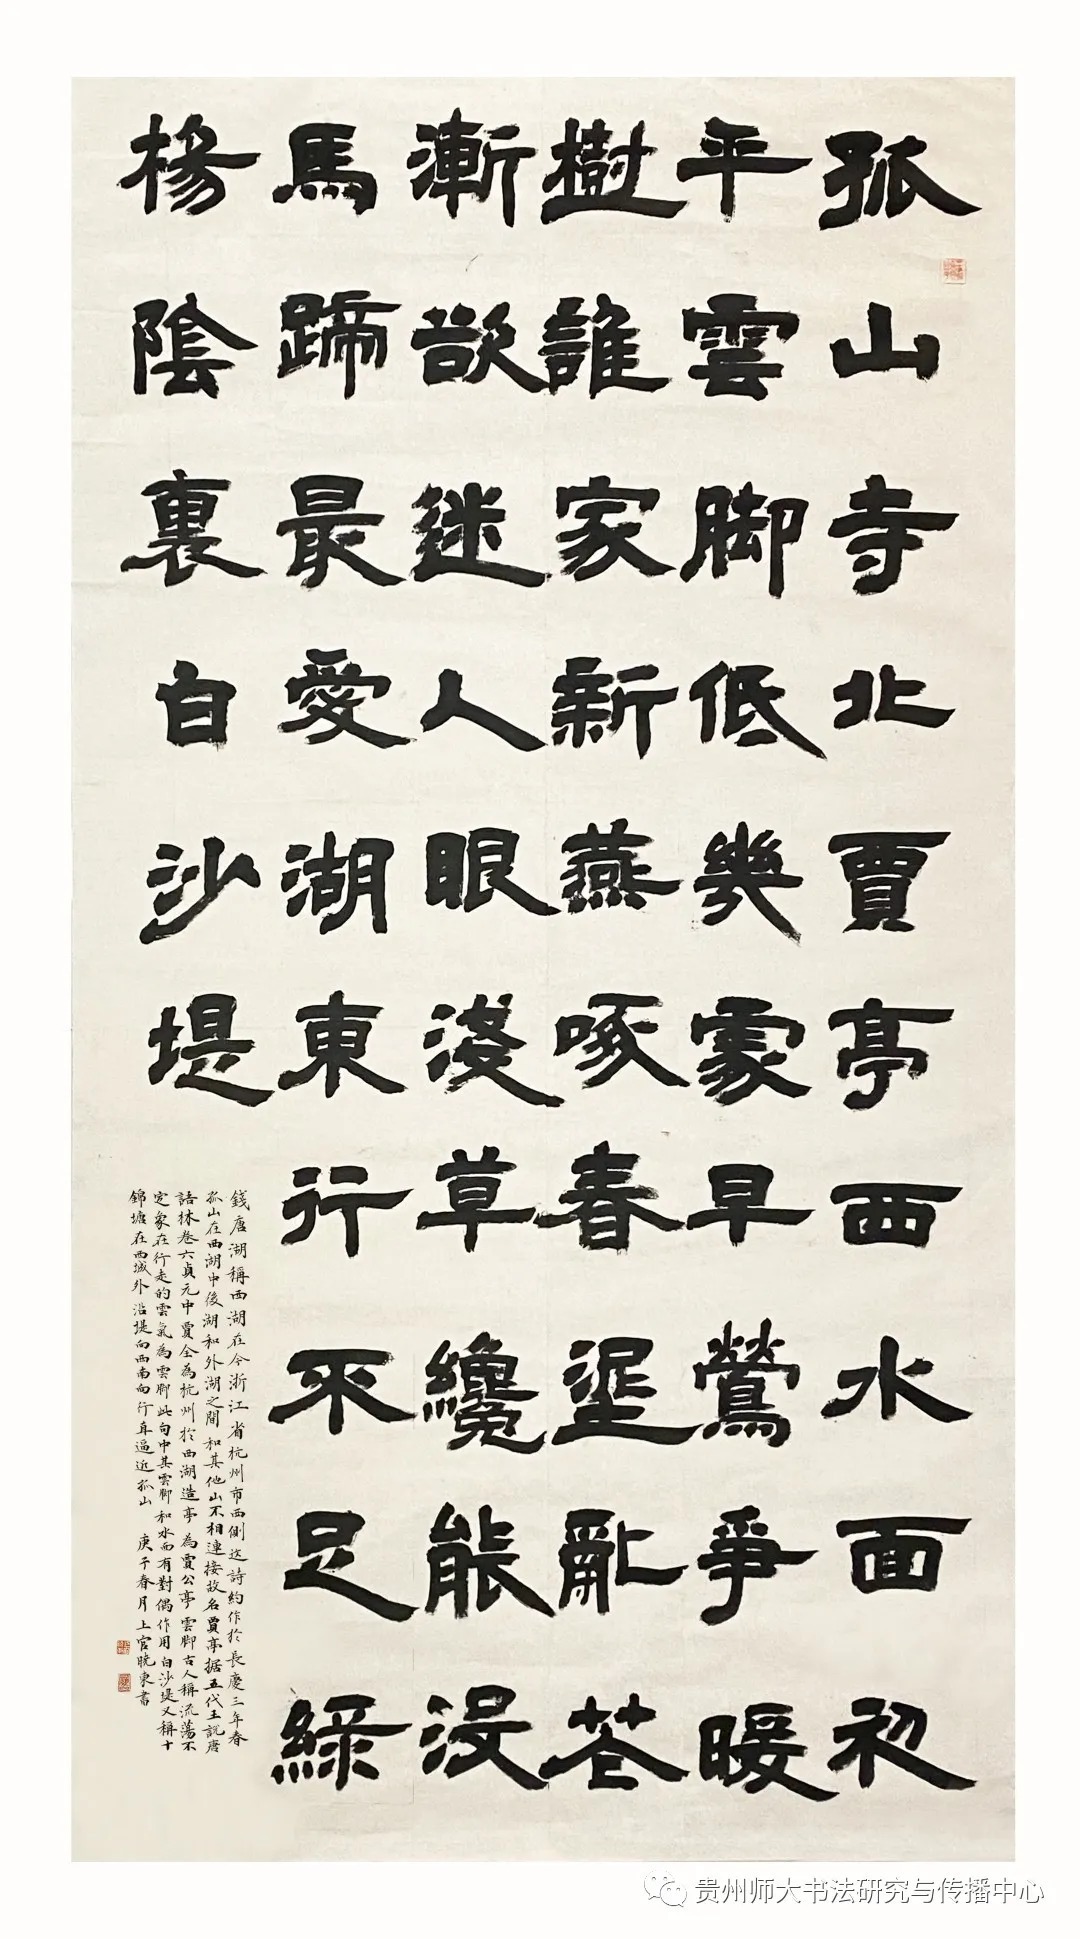 孤山寺北賈亭西水面初
平雲脚低幾處早鶯爭暖
樹誰家新燕啄春泥亂花
漸欲迷人眼淺草纔能没
馬蹄最愛湖東行不足綠
楊陰裏白沙堤
錢唐湖稱西湖在今浙江省杭州市西側這詩約作於長慶三年春
孤山在西湖中後湖和外湖之間和其他山不相連接故名賈亭据五代王説唐
語林卷六貞元中賈全為杭州於西湖造亭為賈公亭雲脚古人稱流蕩不
定象在行走的雲氣為雲脚此句中其雲脚和水面有對偶作用白沙堤又稱十
錦塘在西城外沿堤向西南向行耳逼近孤山 庚子春月上官曉東書
贵州师大书法研究与传播中心